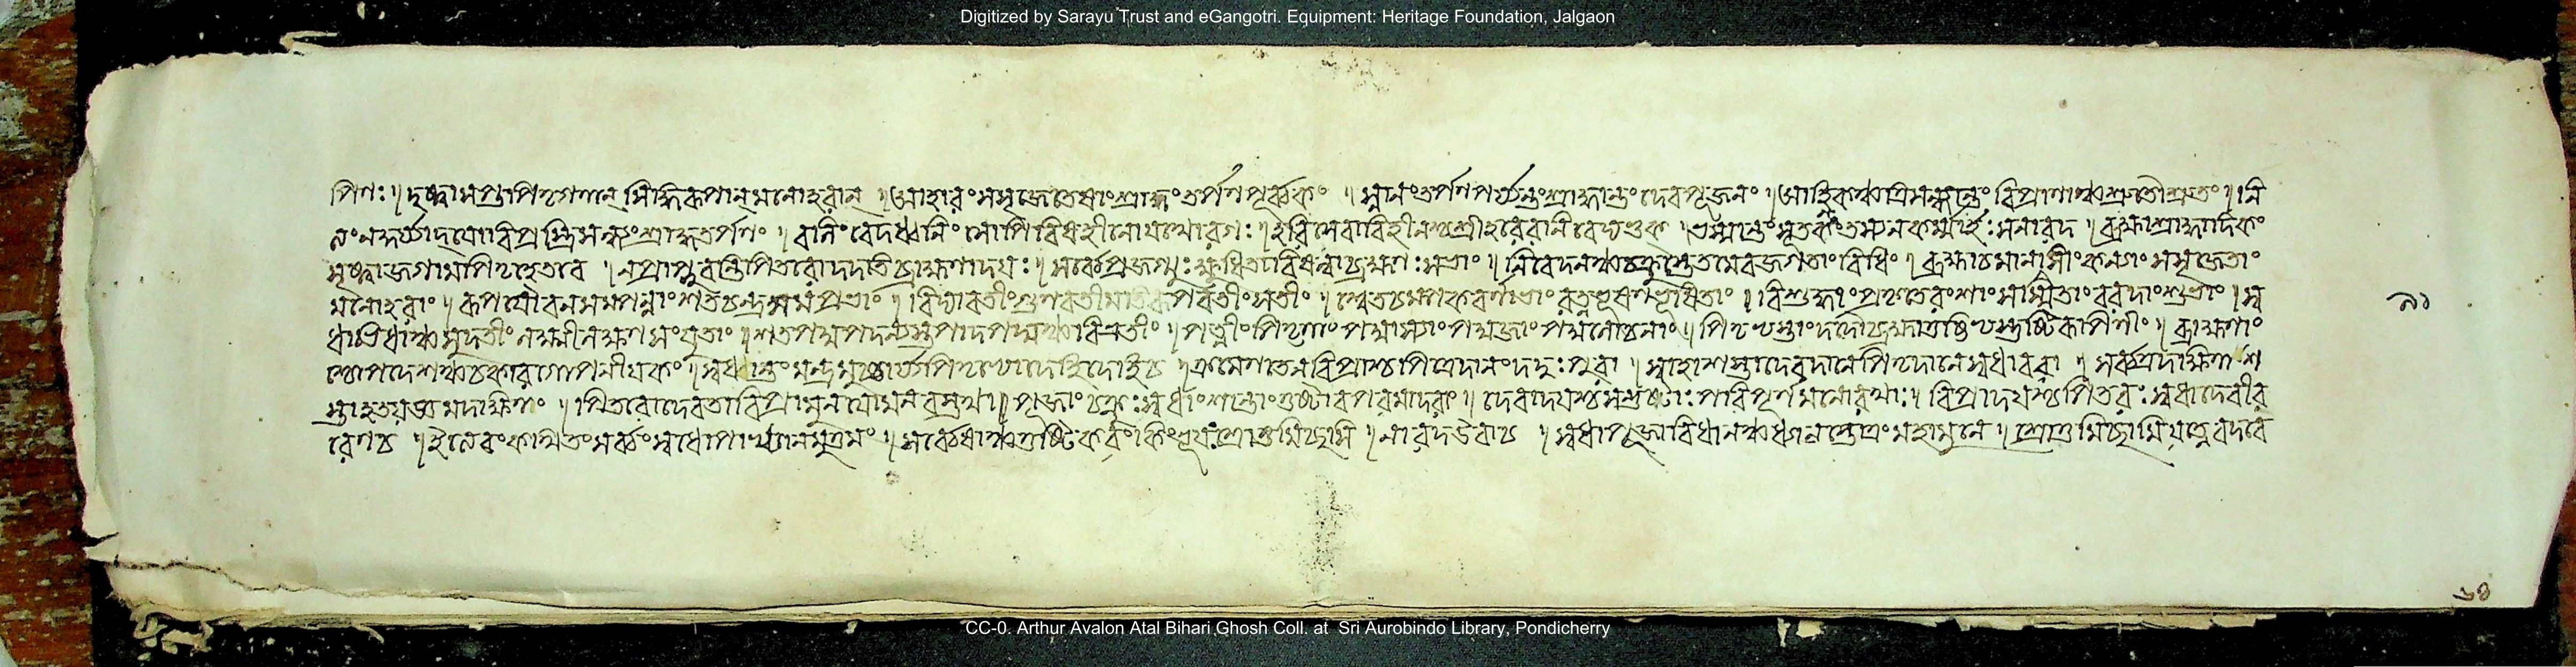 Digitized by Sarayu Trust and eGangotri. Equipment: Heritage Foundation, Jalgaon
পিণঃ। দৃষ্ট্বা সপ্তপিতৃগণান্ মনোহরান্ । আহারং সসৃজে তেষাং শ্রাদ্ধং তর্পণপূর্ব্বকং । স্নানং তর্পণপর্য্যন্তং শ্রাদ্ধান্তং দেবপূজনং । আহ্নিকঞ্চ ত্রিসন্ধ্যান্তং বিপ্রাণাঞ্চ শ্রুতৌ শ্রুতং । নি
বিপ্র ত্রিসন্ধ্যং শ্রাদ্ধতর্পণং । বলিং বেদধ্বনিং সোপি বিষহীনো যথোরগঃ । হরিসেবাবিহীনশ্চ শ্রীহরেরনিবেদ্যভুক্ । ভস্মান্তং সূতকং তস্য ন কর্ম্মার্হঃ স নারদ । ব্রহ্মা শ্রাদ্ধাদিকং
সৃষ্ট্বা জগাম পিতৃহেতবে । ন প্রাপ্নুবন্তি পিতরো দদতি ব্রাহ্মণাদয়ঃ । সর্ব্বে প্রজগ্মুঃ ক্ষুধিতা ব্রহ্মণঃ সভাং । নিবেদনঞ্চ চক্রুস্তে তমেব জগতাং বিধিং । ব্রহ্মা চ মানসীং কন্যাং সসৃজে তাং
মনোহরাং । রূপযৌবনসম্পন্নাং শতচন্দ্রসমপ্রভাং । বিদ্যাবতীং গুণবতীমতিরূপবতীং সতীং । শ্বেতচম্পকবর্ণাভাং রত্নভূষণভূষিতাং । বিশুদ্ধাং প্রকৃতেরংশাং সস্মিতাং বরদাং শুভাং । স্ব
ধাভিধাঞ্চ সুদতীং লক্ষ্মীলক্ষণসংযুতাং । শতপদ্মপদন্যস্তপাদপদ্মঞ্চ বিভ্রতীং । পত্নীং পিতৃণাং পদ্মাস্যাং পদ্মজাং পদ্মলোচনাং । পিতৃভ্যস্তাং দদৌ ব্রহ্মা তুষ্টেভ্যস্তুষ্টিরূপিণীং । ব্রাহ্মণাং
শ্চোপদেশঞ্চ চকার গোপনীয়কং । স্বধান্তং মন্ত্রমুচ্চার্য্য পিতৃভ্যো দেহি । ক্রমেণ তেন বিপ্রাশ্চ পিত্রে দানং দদুঃ পুরা । স্বাহা শস্তা দেবদানে পিতৃদানে স্বধা বরা । সর্ব্বত্র দক্ষিণা শ
স্তা হতযজ্ঞমদক্ষিণং । পিতরো দেবতা বিপ্রা মুনয়ো মনবস্তথা । পূজাং চক্রুঃ স্বধাং শান্তাং তুষ্টাব পরমাদরাং । দেবাদয়শ্চ সন্তুষ্টাঃ পরিপূর্ণমনোরথাঃ । বিপ্রাদয়শ্চ পিতরঃ স্বধাদেবীব
রেণ চ । ইত্যেবং কথিতং সর্ব্বং স্বধোপাখ্যানমুত্তমং । সর্ব্বেষাঞ্চ তুষ্টিকরং কিং ভূয়ঃ শ্রোতুমিচ্ছসি । নারদ উবাচ । স্বধাপূজাবিধানঞ্চ ধ্যানং স্তোত্রং মহামুনে । শ্রোতুমিচ্ছামি যত্নেন বদ বে
৯১
CC-0. Arthur Avalon Atal Bihari Ghosh Coll. at Sri Aurobindo Library, Pondicherry